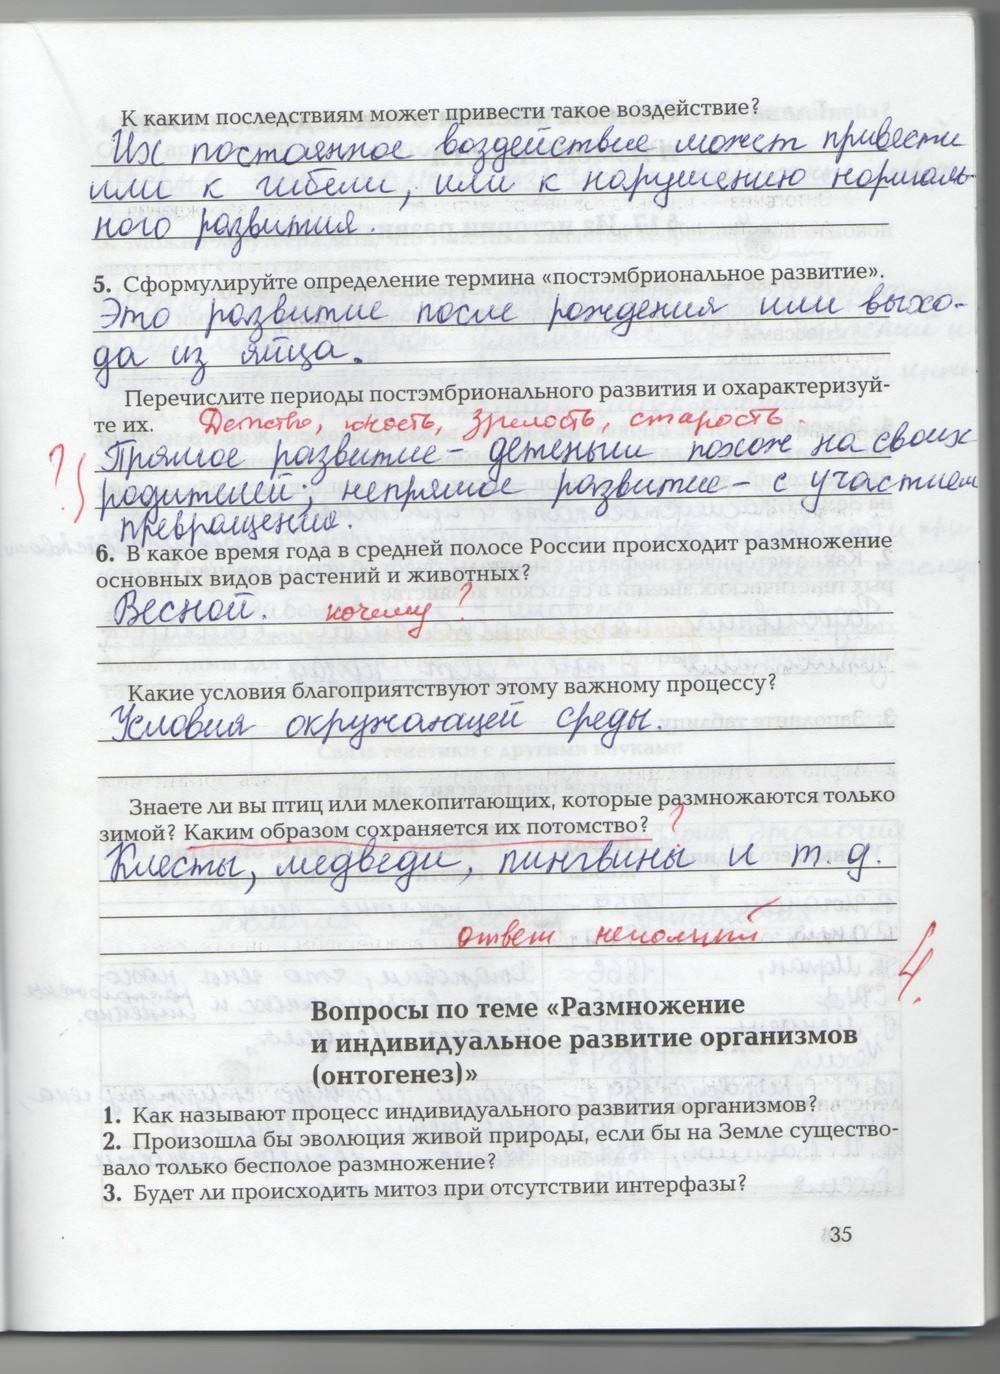 К каким последствиям может привести такое воздействие?
Их постоянное воздействие может привести
или к гибели, или к нарушению нормаль-
ного развития.
5. Сформулируйте определение термина «постэмбриональное развитие».
Это развитие после рождения или выхо-
да из яйца.
Перечислите периоды постэмбрионального развития и охарактеризуй-
те их. Детство, юность, зрелость, старость
? Прямое развитие - детеныш похож на своих
родителей; непрямое развитие - с участием
превращения.
6. В какое время года в средней полосе России происходит размножение
основных видов растений и животных?
Весной. почему?
Какие условия благоприятствуют этому важному процессу?
Условия окружающей среды.
Знаете ли вы птиц или млекопитающих, которые размножаются только
зимой? Каким образом сохраняется их потомство? ?
Клесты, медведи, пингвины и т.д.
ответ неполный
4.
Вопросы по теме «Размножение
и индивидуальное развитие организмов
(онтогенез)»
1. Как называют процесс индивидуального развития организмов?
2. Произошла бы эволюция живой природы, если бы на Земле существо-
вало только бесполое размножение?
3. Будет ли происходить митоз при отсутствии интерфазы?
35